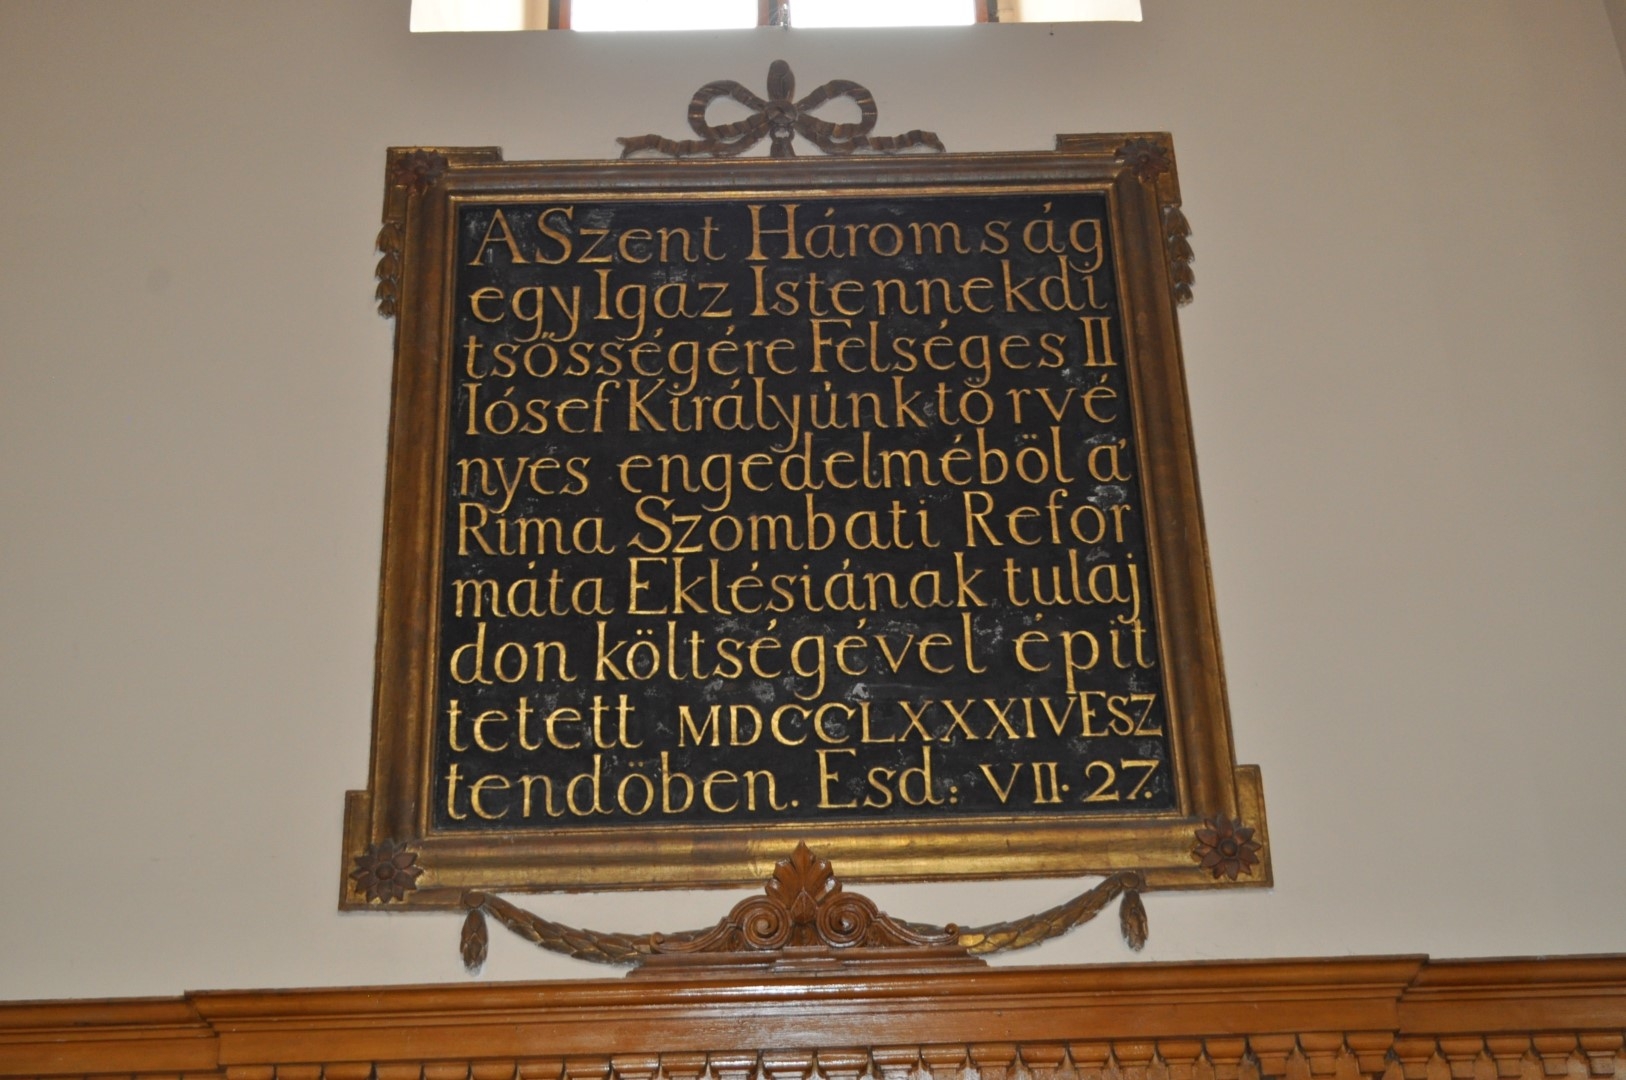 A Szent Háromság
egy Igaz Istennek di
tsősségére Felséges II
Iósef Királyùnk tö rvé
nyes engedelméböl a'
Rima Szombati Refor
máta Eklésiának tulaj
don költségével épit
tetett MDCCLXXXIV ESZ
tendöben. Esd: VII. 27.